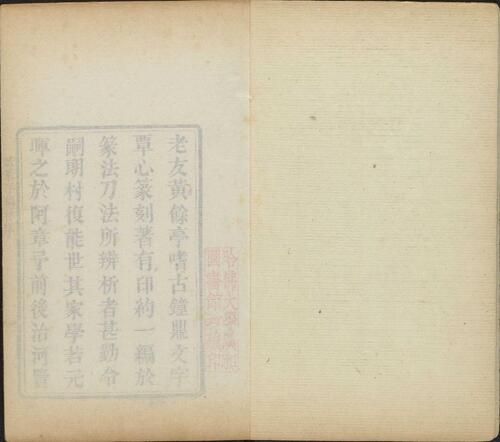 老友黃餘亭嗜古鐘鼎文字
覃心篆刻著有印約一編於
篆法刀法所辨析者甚勤令
嗣明村復能世其家學若元
暉之於阿章予前後治河暨
哈佛大學漢和
圖書館珍藏印